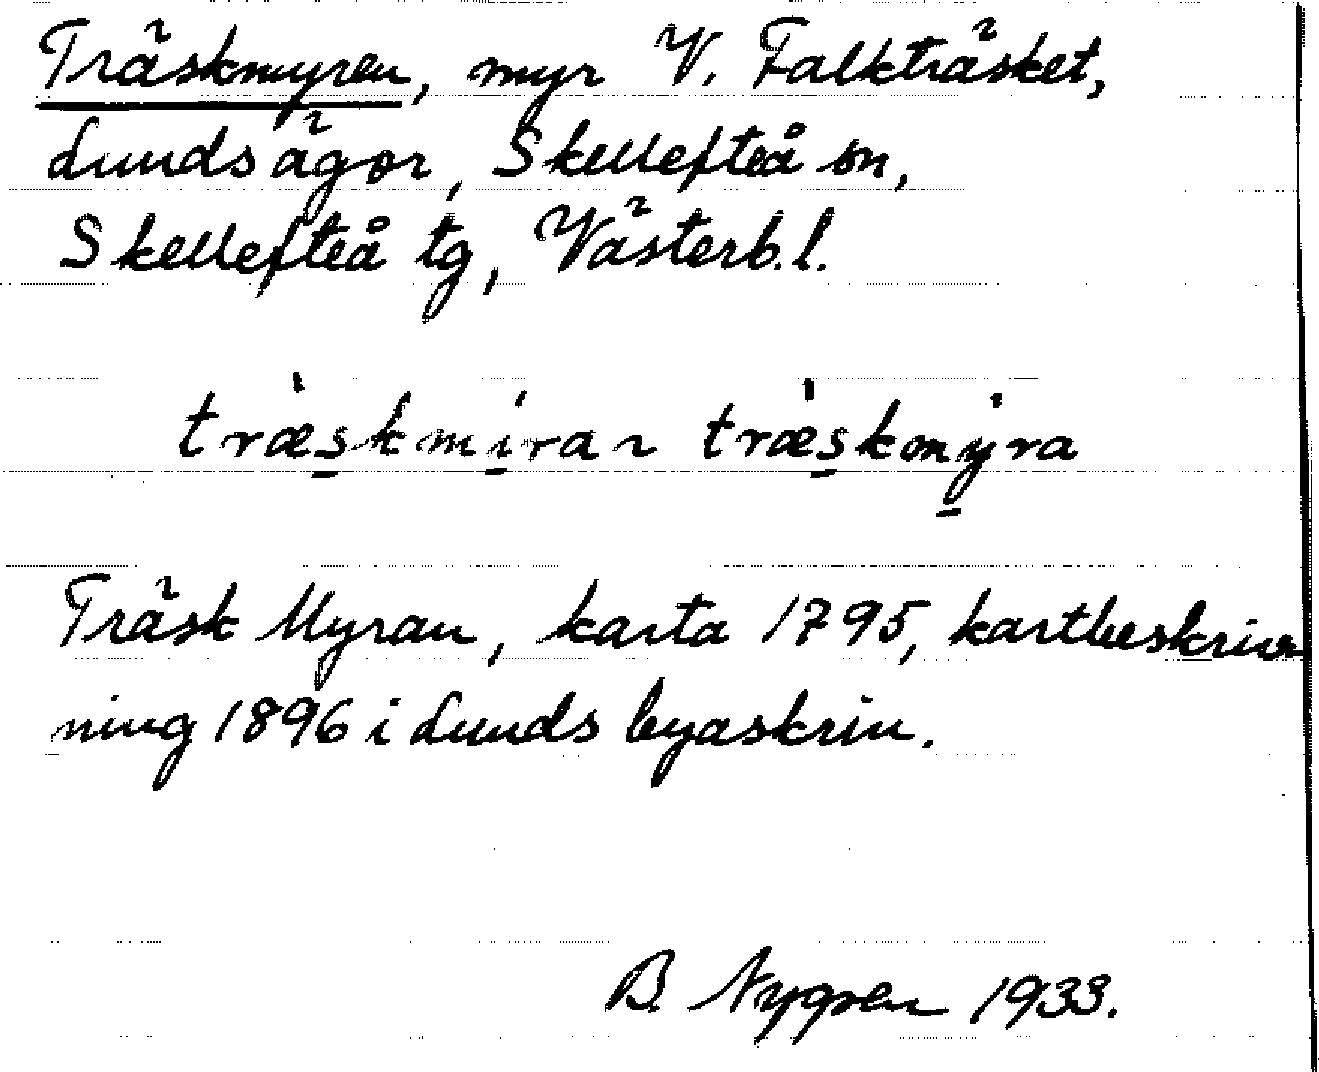 Träskmyren, myr V. Falkträsket,
Lunds ägor, Skellefteå sn,
Skellefteå tg, Västerb. l.
træskmira ~ træskmyra
Träsk Myran, karta 1795, kartbeskriv-
ning 1896 i Lunds byaskrin.
B. Nygren 1933.